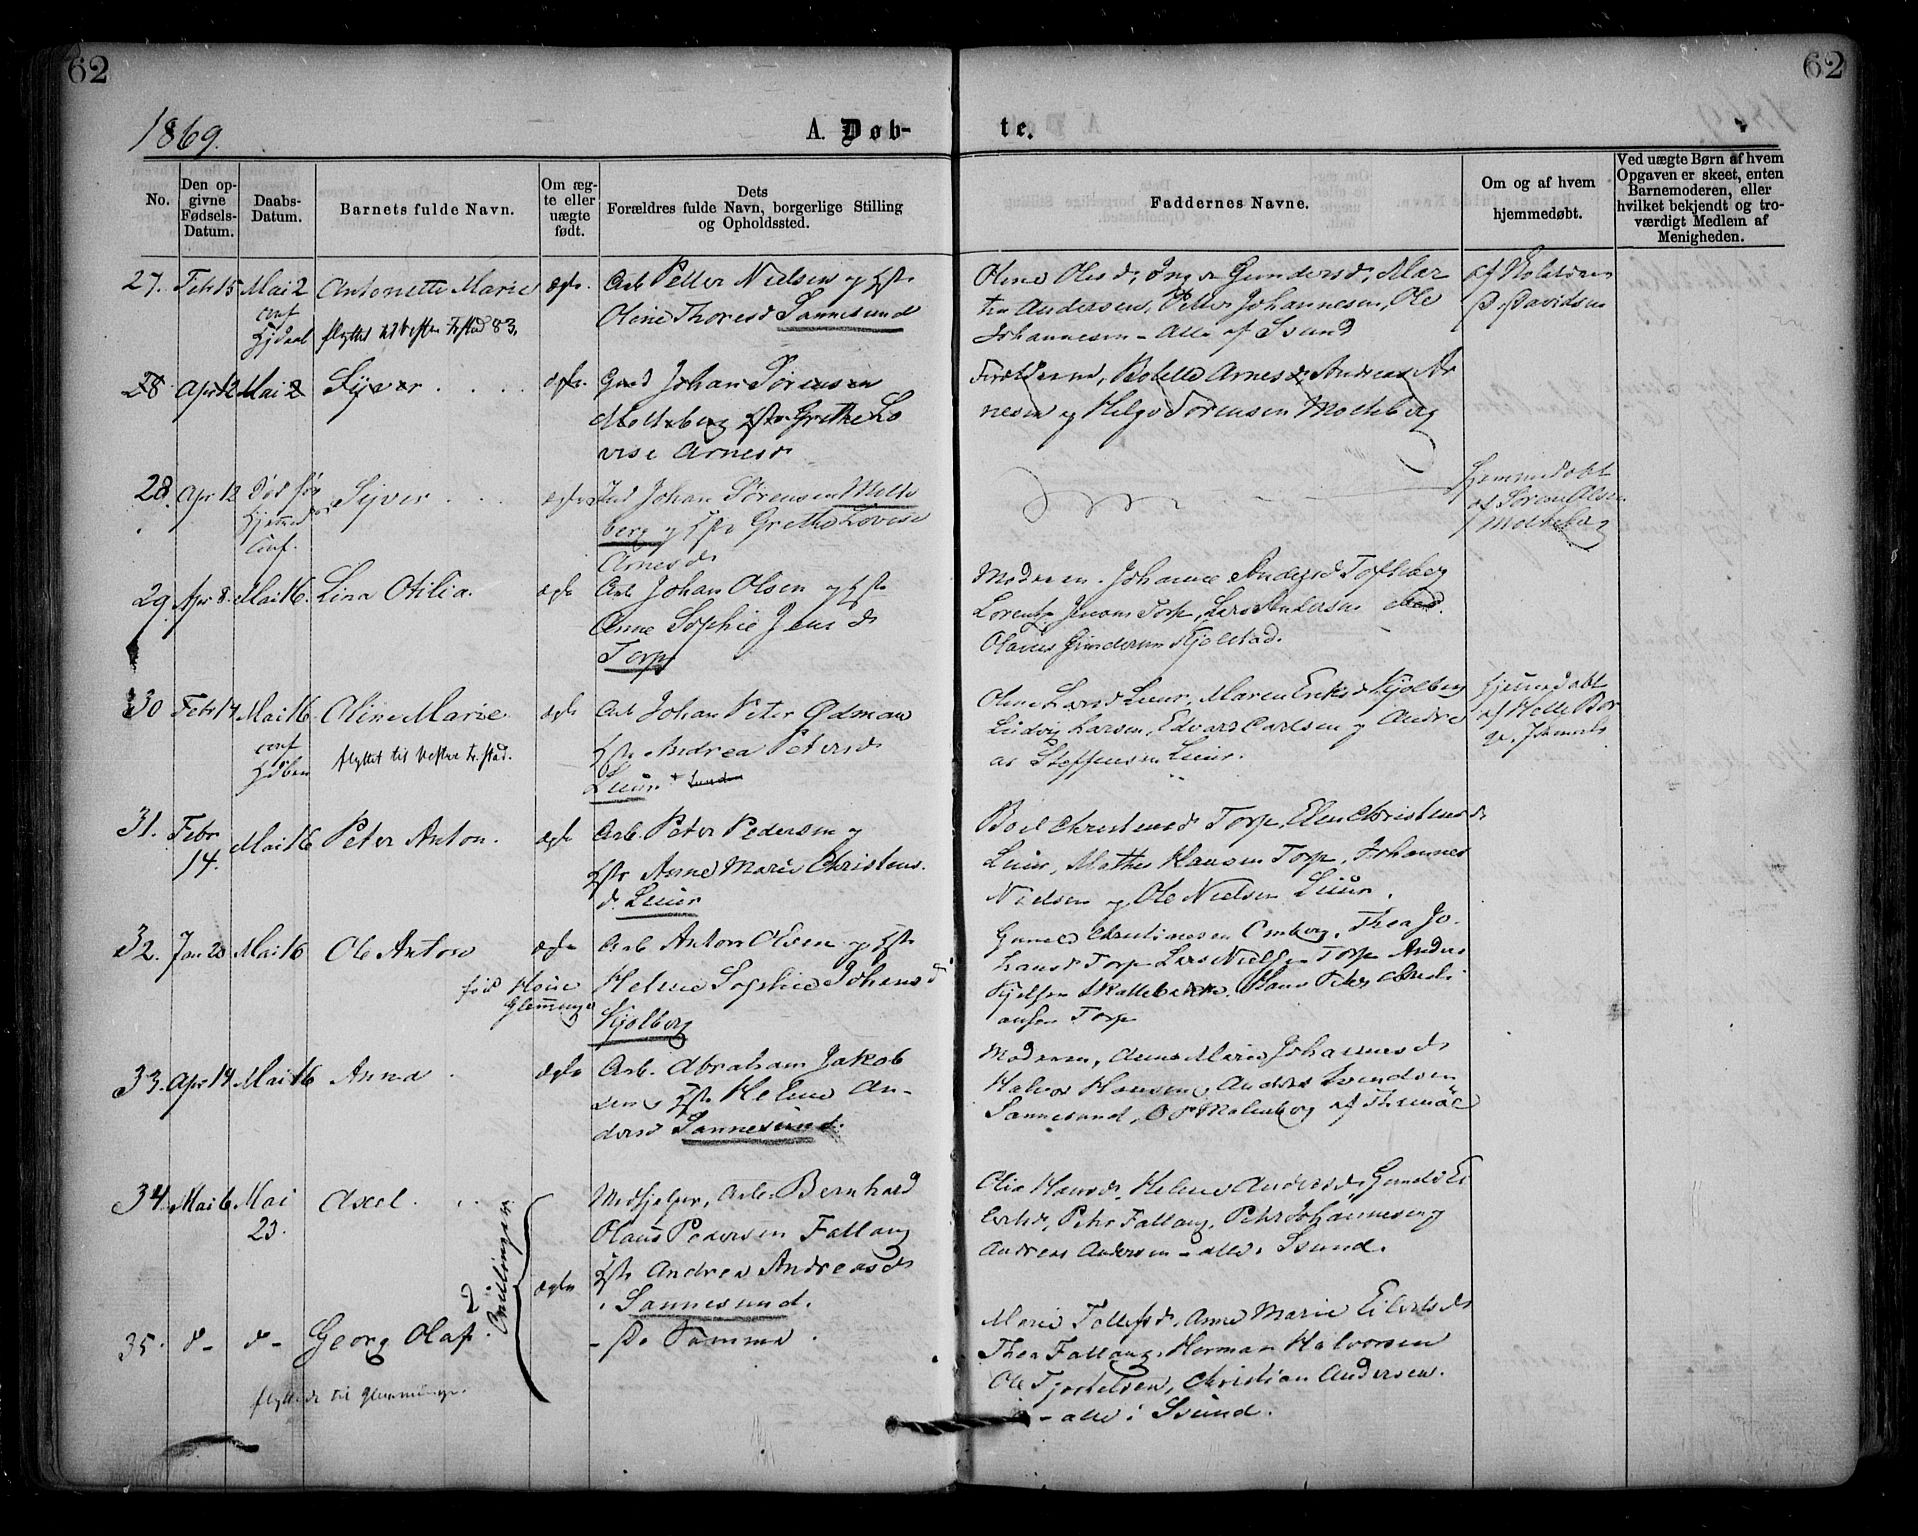 62
62
1869.
A. Døb-
te.
No.
Den op-
givne
Fødsels-
Datum.
Daabs-
Datum.
Barnets fulde Navn.
Om æg-
te eller
uægte
født.
Dets
Forældres fulde Navn, borgerlige Stilling
og Opholdssted.
Faddernes Navne.
Om og af hvem
hjemmedøbt.
Ved uægte Børn af hvem
Opgaven er skeet, enten
Barnemoderen, eller
hvilket bekjendt og tro-
værdigt Medlem af
Menigheden.
27. Feb 15 Mai 2 Antonette Marie ægte. Arb Petter Nielsen og Hstr
Oline Thoresd Sannesund
conf
flyttet til Vestre Fstad 83.
Oline Olesd, Inger Gundersd, Mar
tin Andersen, Petter Johannesen, Ole
Johannesen - Alle af Ssund
Davidsen
28 Apr 12 Mai 2 Syver ægte. Gmd Johan Sørensen
Molteberg Hstr Grethe Lo
vise Arnesd
Forældrene, Bolette Arnesd, Andreas Ar
nesen og Helge Sørensen Molteberg
28. Apr 12 Død før
conf.
Syver ægte Ind Johan Sørensen Molte
berg og Grethe Lovise
Arnesd
Hjemmedøbt
af Søren Olsen
Molteberg
29. Apr 8. Mai 16. Lina Otilia. ægte Arb Johan Olsen og Hstr
Anne Sophie Jensd
Torp
Moderen. Johanne Andersd Tofteberg
Lorentz Jensen Torp, Lars Andersen
Olaves Gundersen Kjølstad.
30 Febr 14 Mai 16 Oline Marie ægte Arb Johan Peter Ødman
Hstr Andrea Petersd
Leiur
conf
flyttet til Vestre Fr.stad.
Oline Larsd Leiur, Maren Eriksd Kjølberg
Ludvig Larsen, Edvard Carlsen og Andre
as Steffensen Leiur.
hjemmedøbt
af Helle Bor
31. Febr
14.
Mai 16 Peter Anton. ægte Arb. Peter Pedersen og
Hstr Anne Marie Christens.
d. Leiur
Boel Christensd Torp, Elen Christensd
Leiur, Mathis Hansen Torp, Johannes
Nielsen og Ole Nielsen Leiur.
32. Jan 20 Mai 16 Ole Anton ægte Arb Anton Olsen og Hstr
Helene Sophie Johansd
Kjølberg
Glemminge
Gunild Christiansen Omberg, Thea Jo-
hansd Torp Lars Nielsen Torp Anders
Kjelsen Skallebakke. Hans Peter Christi
ansen Torp
33. Apr 14 Mai 16 Anna ægte Arb. Abraham Jakob
sen Hstr Helene An-
dersd Sannesund.
Moderen, Anne Marie Johannesd
Halvor Hansen, Anders Svendsen
Sannesund, O P Malenberg af Thunøe
34. Mai 6 Mai
23.
Axel. Medhjelper, Arb. Bernhard
Olaus Pedersen Fallang
Hstr Andrea Andreasd
Sannesund.
ægte
2 Tvillinger
Olia Hansd, Helene Andersd, Gunild Ei
lertsd, Peter Fallang, Peter Johannesen og
Andreas Andersen - alle i Ssund.
35. d- d- Georg Olaf. - De Samme.
flyttede til Glemminge.
Marie Tollefsd, Anne Marie Eilertsd
Thea Fallang, Herman Halvorsen
Ole Tjøstelsen, Christian Andersen.
- alle i Ssund.